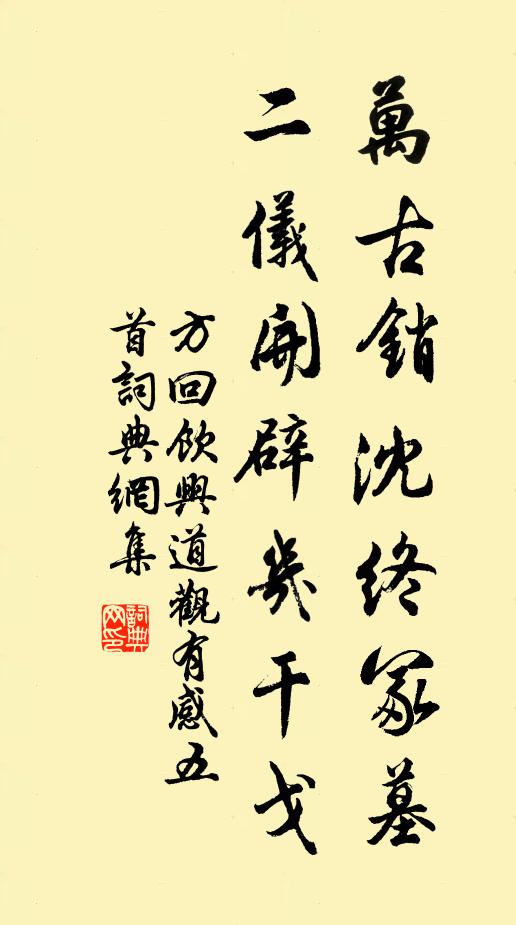 萬古銷沈終冢墓
二儀開辟幾干戈
方回飲興道觀有感五
首詞典網集
詞典
网印